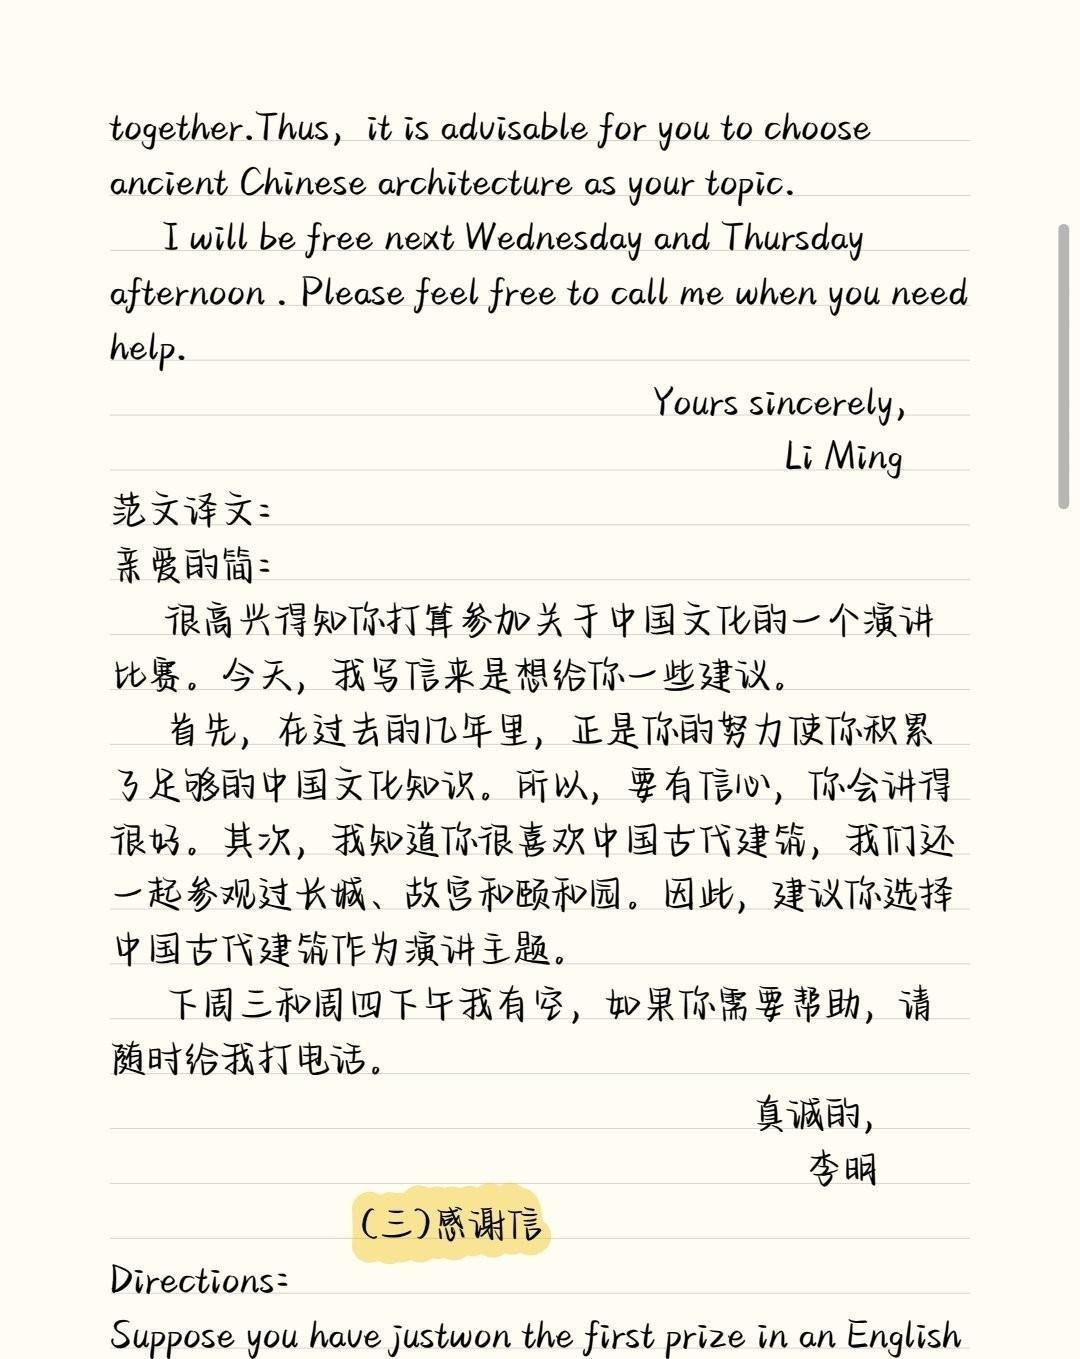 together.Thus, it is advisable for you to choose
ancient Chinese architecture as your topic.
I will be free next Wednesday and Thursday
afternoon . Please feel free to call me when you need
help.
Yours sincerely,
Li Ming
范文译文:
亲爱的简:
很高兴得知你打算参加关于中国文化的一个演讲
比赛。今天，我写信来是想给你一些建议。
首先，在过去的几年里，正是你的努力使你积累
了足够的中国文化知识。所以，要有信心，你会讲得
很好。其次，我知道你很喜欢中国古代建筑，我们还
一起参观过长城、故宫和颐和园。因此，建议你选择
中国古代建筑作为演讲主题。
下周三和周四下午我有空，如果你需要帮助，请
随时给我打电话。
真诚的，
李明
(三)感谢信
Directions:
Suppose you have justwon the first prize in an English